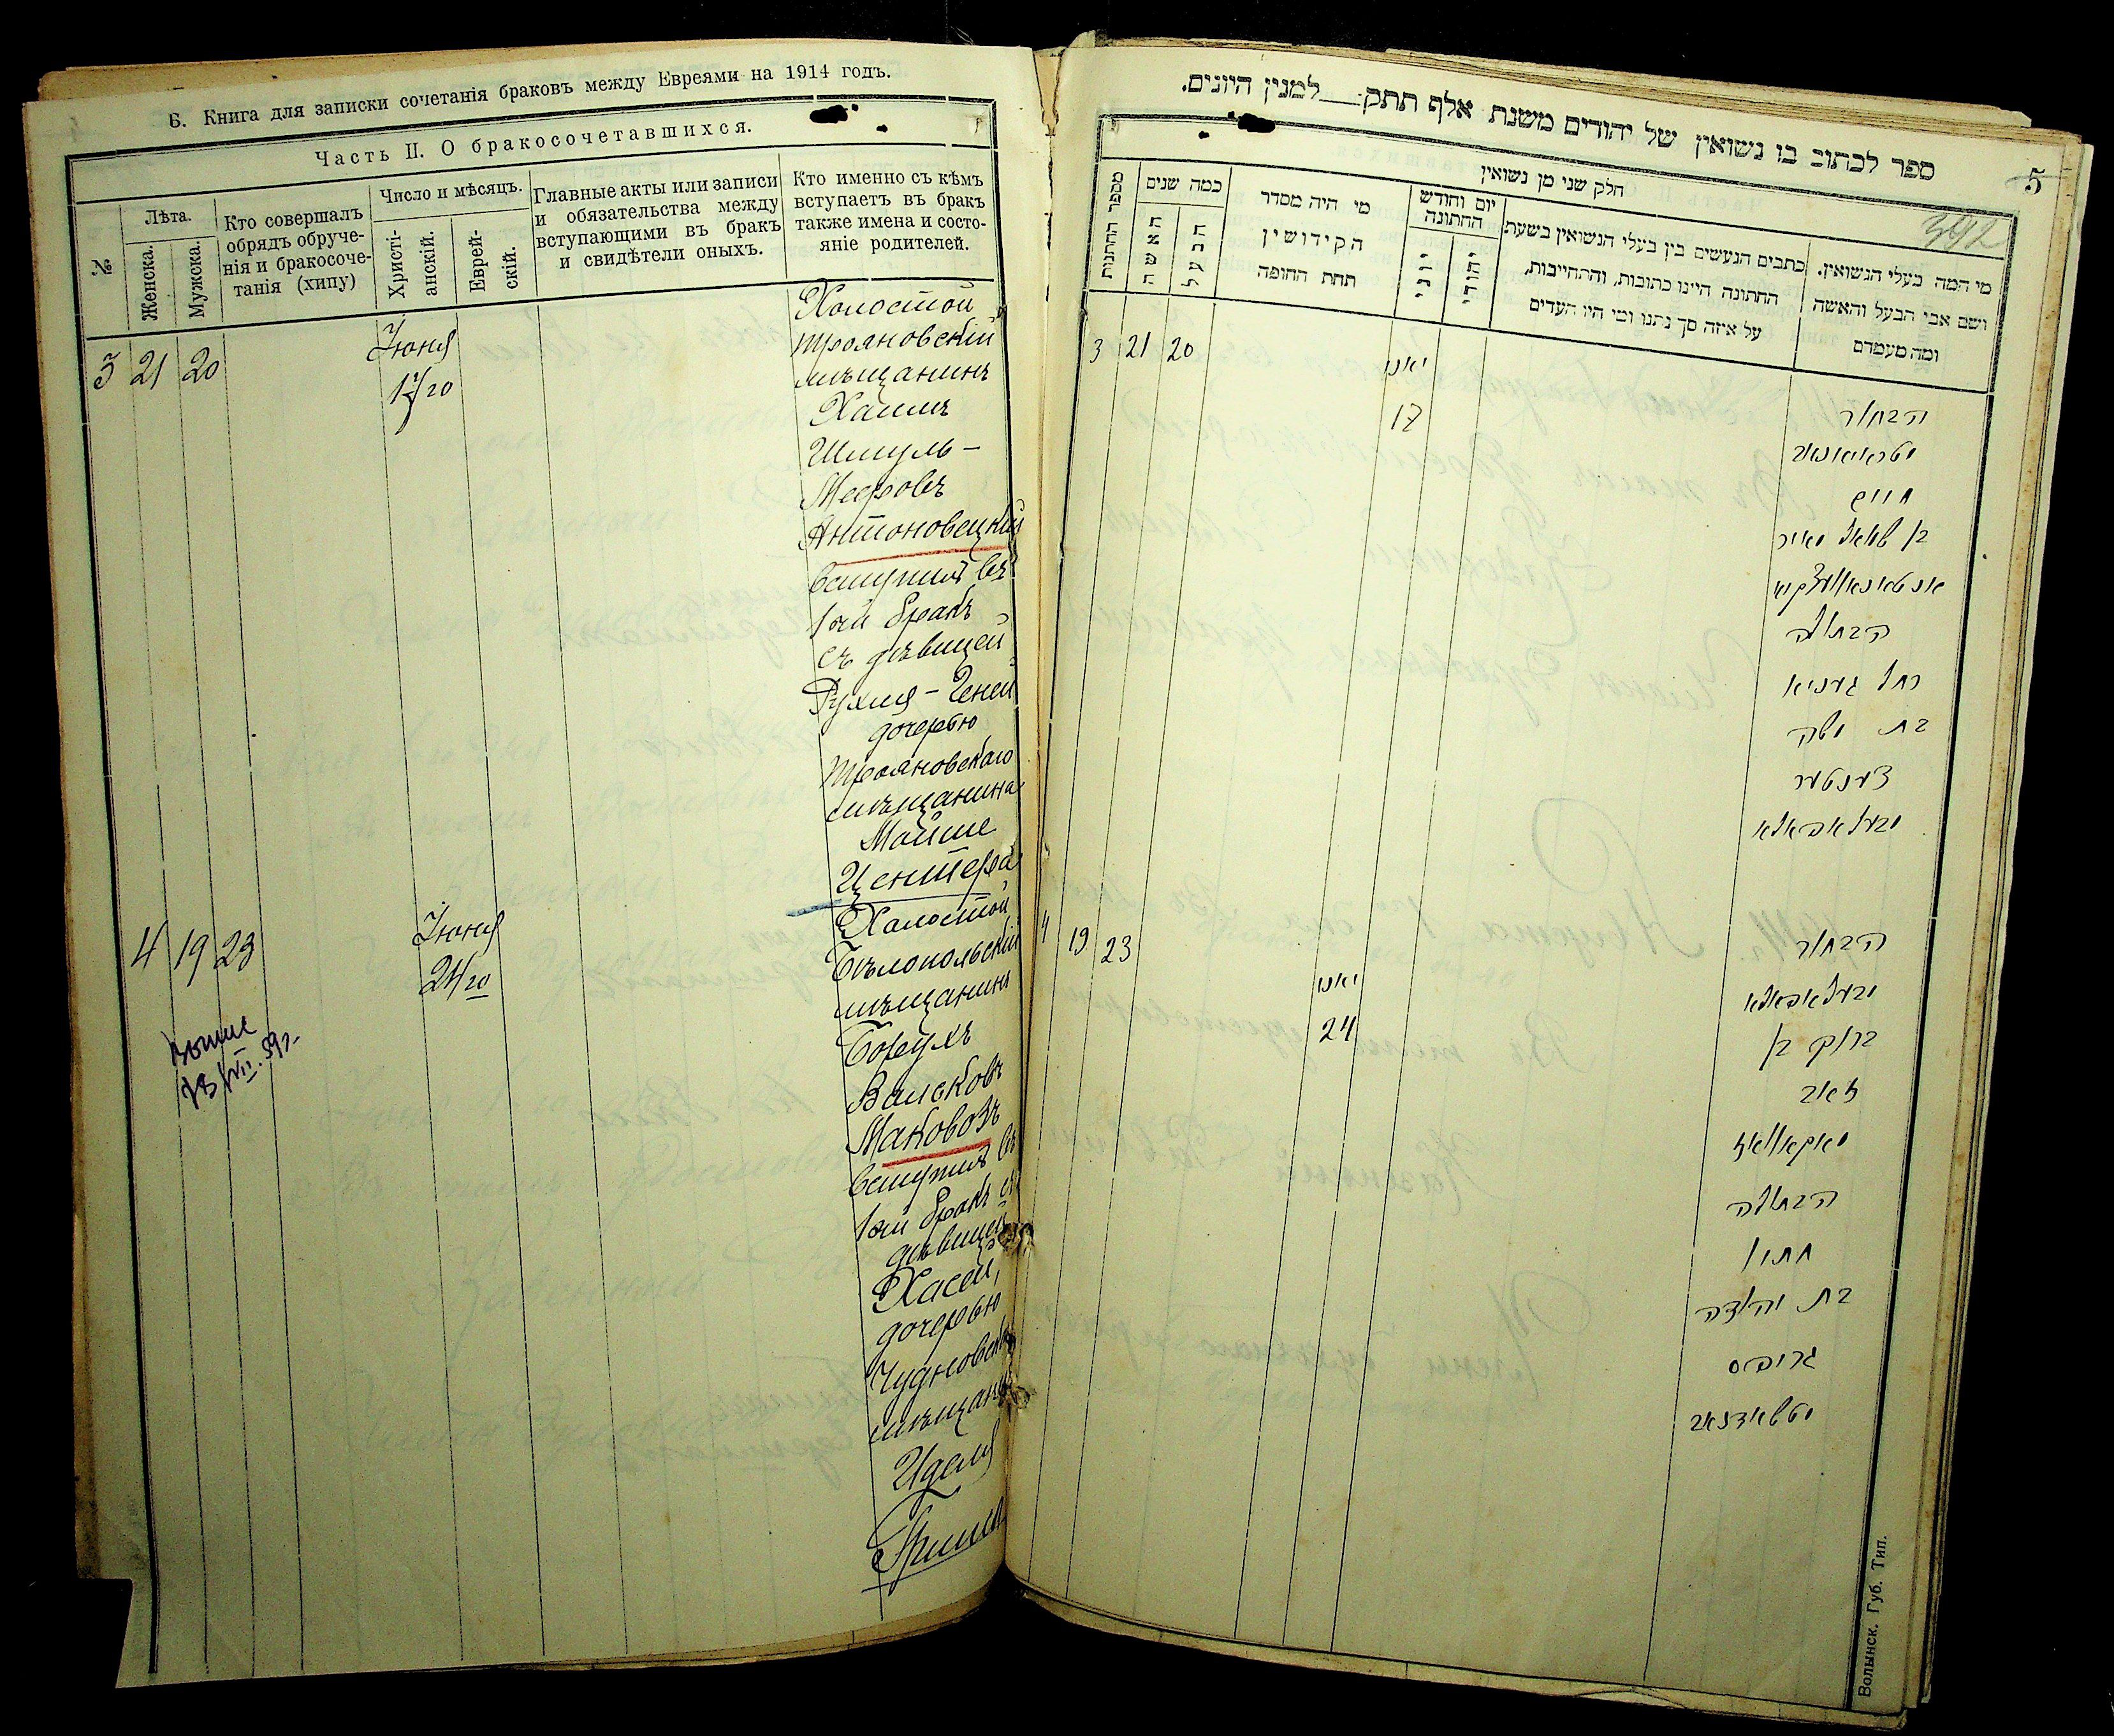 Б. Книга для записки сочетанія браковъ между Евреями на 1914 годъ.
Часть II. О бракосочетавшихся.
№
Лѣта.
Женска.
Мужска.
Кто совершалъ
обрядъ обруче-
нія и бракосоче-
танія (хипу)
Число и мѣсяцъ.
Христі-
анскій.
Еврей-
скій.
Главные акты или записи
и обязательства между
вступающими въ бракъ
и свидѣтели оныхъ.
Кто именно съ кѣмъ
вступаетъ въ бракъ
также имена и состо-
яніе родителей.
3 21 20
Іюня
17/20
Холостой
Трояновскій
мѣщанинъ
Хаимъ
Шмуль-
Мееровъ
Антоновецкій
вступилъ въ
1ый бракъ
съ дѣвицей
Рухля-Геней
дочерью
Трояновскаго
мѣщанина
Мойше
Центера
4 19 23
Іюня
24/20
Холостой
Бѣлопольскій
мѣщанинъ
Борухъ
Вольковъ
Маковозъ
вступилъ въ
1ый бракъ съ
дѣвицей
Хасей,
дочерью
Чудновск
мѣщани
Иделя
5
392
ספר לכתוב בו נשואין של יהודים משנת אלף תתק למנין היונים.
חלק שני מן נשואין
מספר החתונות
כמה שנים
האשה
הבעל
מי היה מסדר
הקידושין
תחת החופה
יום וחודש
החתונה
יוני
יהודי
כתבים הנעשים בין בעלי הנשואין בשעת
החתונה היינו כתובות, והתחייבות,
על איזה סך נתנו ומי היו העדים
מי המה בעלי הנשואין.
ושם אבי הבעל והאשה
ומה מעמדם
3 21 20
יאני
17
הבחור
חיים
בן שמואל מאיר
הבתולה
רחל געניא
בת משה
צענטער
4 19 23
יאני
24
הבחור
ברוך בן
זאב
מאקאוואז
הבתולה
בת יהודה
Волынск. Губ. Тип.